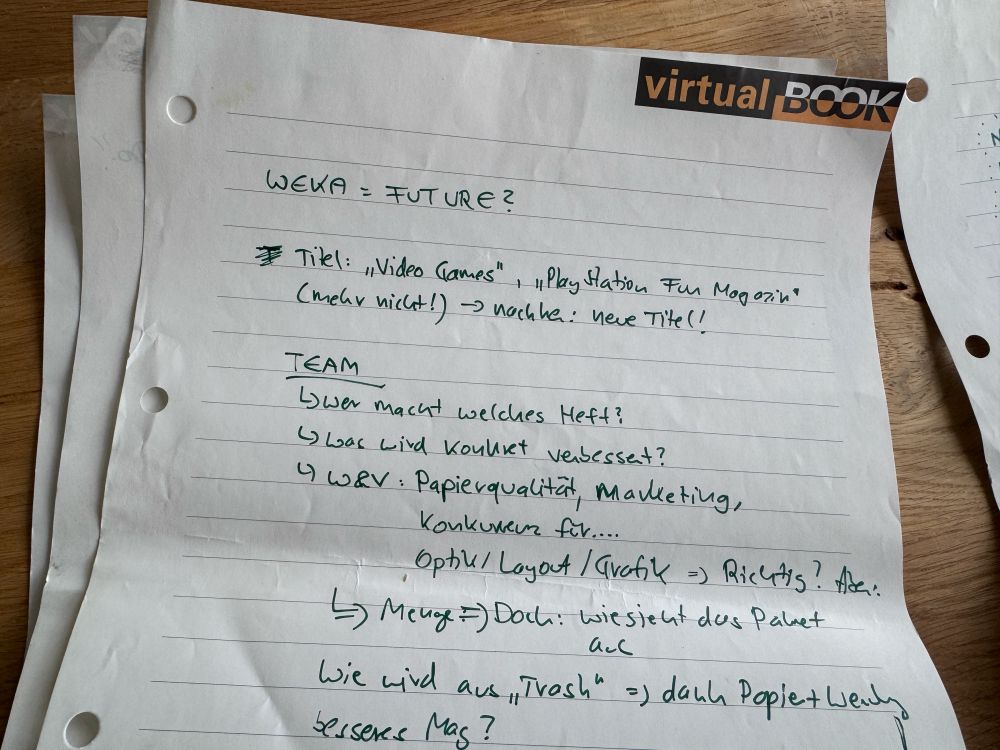 virtual BOOK
WEKA = FUTURE?
Titel: „Video Games“, „PlayStation Fun Magazin“
(mehr nicht!) → nachher: neue Titel!
TEAM
↳ wer macht welches Heft?
↳ was wird konkret verbessert?
↳ W&V: Papierqualität, Marketing,
Konkurrenz für....
Optik/Layout/Grafik ⇒ Richtig? Aber:
↳ Menge ⇒ Doch: wie sieht das Paket
aus
Wie wird aus „Trash“ ⇒ dank Papier + Werbung
besseres Mag?